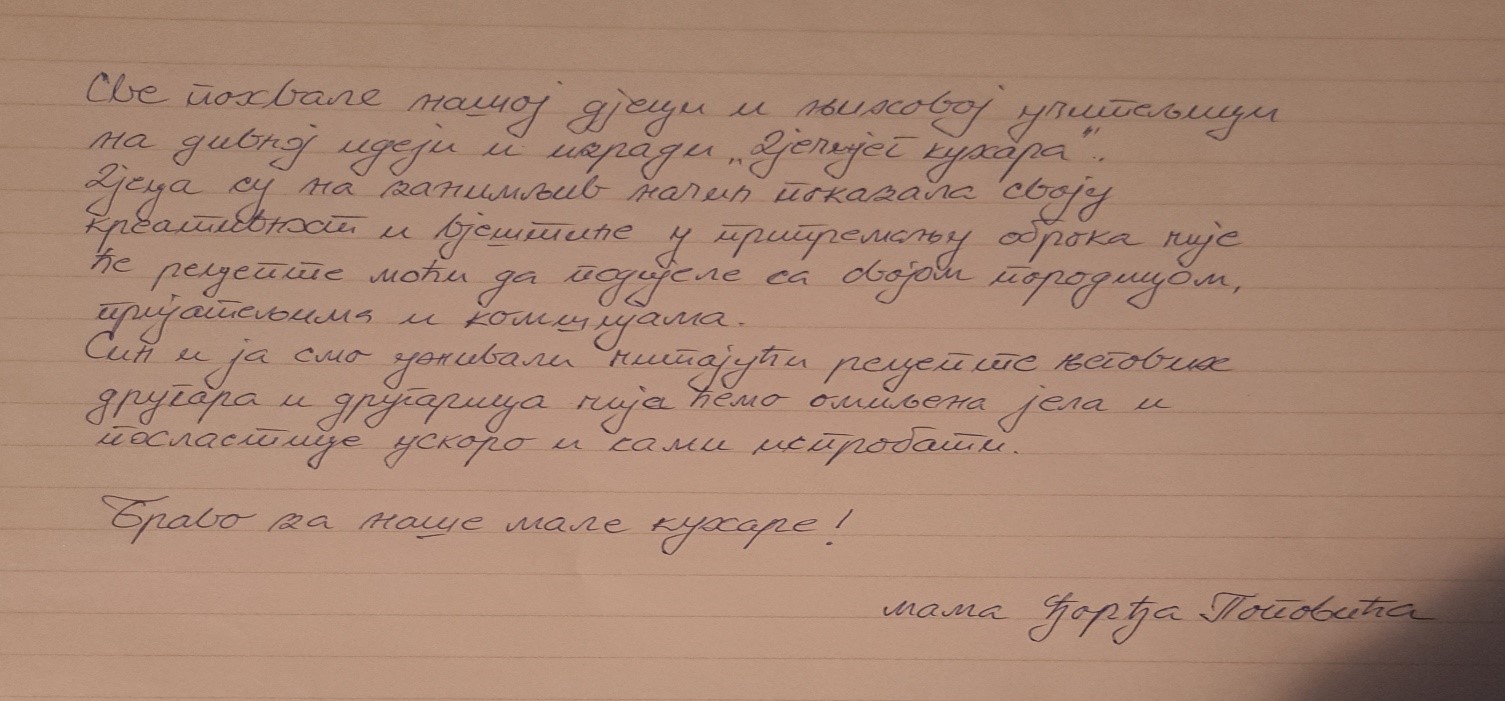 Све похвале нашој дјеци и њиховој учитељици
на дивној идеји и изради „Дјечијег кухара“.
Дјеца су на занимљив начин показала своју
креативност и вјештине у припремању оброка чије
ће рецепте моћи да подијеле са својом породицом,
пријатељима и комшијама.
Син и ја смо уживали читајући рецепте његових
другара и другарица чија ћемо омиљена јела и
посластице ускоро и сами испробати.
Браво за наше мале кухаре!
мама Ђорђа Поповића